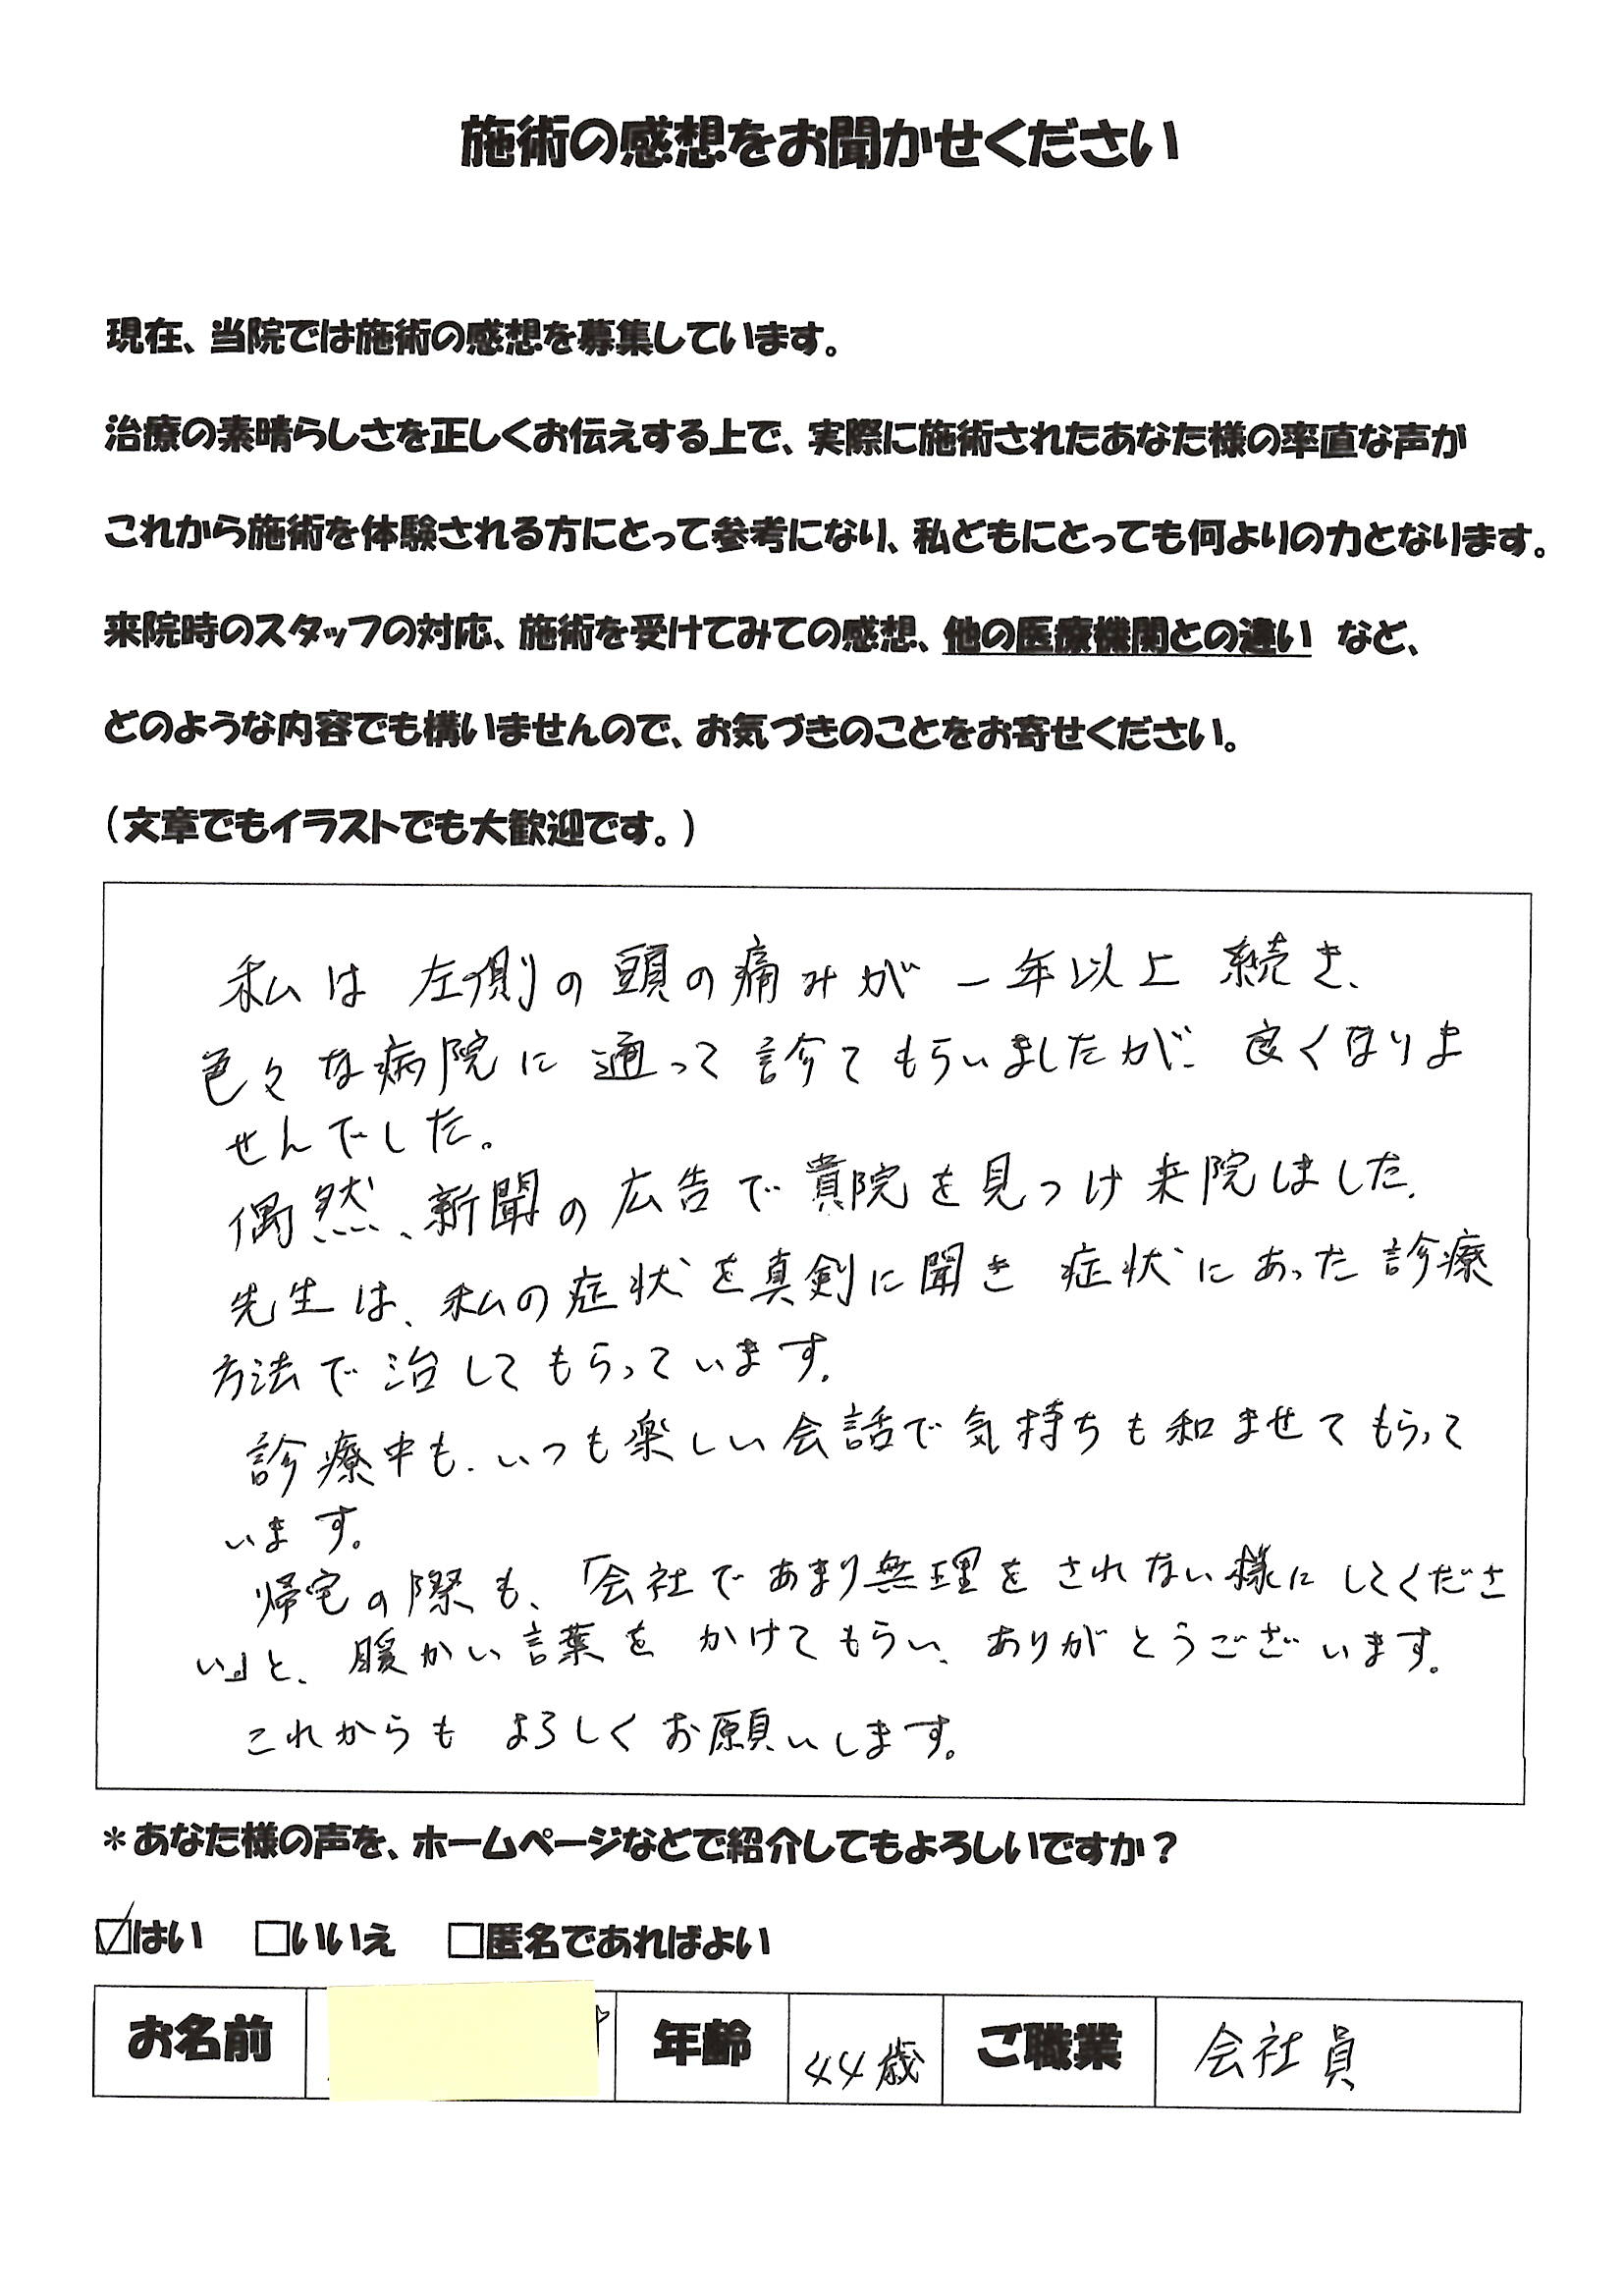 施術の感想をお聞かせください
現在、当院では施術の感想を募集しています。
治療の素晴らしさを正しくお伝えする上で、実際に施術されたあなた様の率直な声が
これから施術を体験される方にとって参考になり、私どもにとっても何よりの力となります。
来院時のスタッフの対応、施術を受けてみての感想、他の医療機関との違い など、
どのような内容でも構いませんので、お気づきのことをお寄せください。
（文章でもイラストでも大歓迎です。）
私は 左側の頭の痛みが 一年以上 続き、
色々な病院に 通って 診てもらいましたが、良くなりま
せんでした。
偶然、新聞の広告で貴院を見つけ来院しました。
先生は、私の症状を真剣に聞き 症状にあった診療
方法で治してもらっています。
診療中も、いつも楽しい会話で気持ちも和ませてもらって
います。
帰宅の際も、「会社であまり無理をされない様にしてくださ
い。」と、暖かい言葉を かけてもらい、ありがとうございます。
これからも よろしくお願いします。
＊あなた様の声を、ホームページなどで紹介してもよろしいですか？
☑はい □いいえ □匿名であればよい
お名前 年齢 44歳 ご職業 会社員